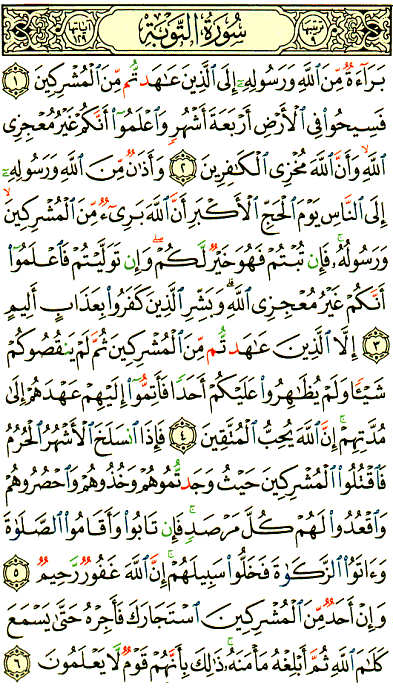 ترتيبها ٩ سُورَةُ التَّوْبَةِ آياتها ١٢٩
بَرَآءَةٌ مِّنَ اللَّهِ وَرَسُولِهِۦٓ إِلَى الَّذِينَ عَٰهَدتُّم مِّنَ الْمُشْرِكِينَ ١
فَسِيحُوا۟ فِى الْأَرْضِ أَرْبَعَةَ أَشْهُرٍ وَاعْلَمُوٓا۟ أَنَّكُمْ غَيْرُ مُعْجِزِى
اللَّهِ ۙ وَأَنَّ اللَّهَ مُخْزِى الْكَٰفِرِينَ ٢ وَأَذَٰنٌ مِّنَ اللَّهِ وَرَسُولِهِۦٓ
إِلَى النَّاسِ يَوْمَ الْحَجِّ الْأَكْبَرِ أَنَّ اللَّهَ بَرِىٓءٌ مِّنَ الْمُشْرِكِينَ ۙ
وَرَسُولُهُۥ ۚ فَإِن تُبْتُمْ فَهُوَ خَيْرٌ لَّكُمْ ۖ وَإِن تَوَلَّيْتُمْ فَاعْلَمُوٓا۟
أَنَّكُمْ غَيْرُ مُعْجِزِى اللَّهِ ۗ وَبَشِّرِ الَّذِينَ كَفَرُوا۟ بِعَذَابٍ أَلِيمٍ
٣ إِلَّا الَّذِينَ عَٰهَدتُّم مِّنَ الْمُشْرِكِينَ ثُمَّ لَمْ يَنقُصُوكُمْ
شَيْـًٔا وَلَمْ يُظَٰهِرُوا۟ عَلَيْكُمْ أَحَدًا فَأَتِمُّوٓا۟ إِلَيْهِمْ عَهْدَهُمْ إِلَىٰ
مُدَّتِهِمْ ۚ إِنَّ اللَّهَ يُحِبُّ الْمُتَّقِينَ ٤ فَإِذَا انسَلَخَ الْأَشْهُرُ الْحُرُمُ
فَاقْتُلُوا۟ الْمُشْرِكِينَ حَيْثُ وَجَدتُّمُوهُمْ وَخُذُوهُمْ وَاحْصُرُوهُمْ
وَاقْعُدُوا۟ لَهُمْ كُلَّ مَرْصَدٍ ۚ فَإِن تَابُوا۟ وَأَقَامُوا۟ الصَّلَوٰةَ
وَءَاتَوُا۟ الزَّكَوٰةَ فَخَلُّوا۟ سَبِيلَهُمْ ۚ إِنَّ اللَّهَ غَفُورٌ رَّحِيمٌ ٥
وَإِنْ أَحَدٌ مِّنَ الْمُشْرِكِينَ اسْتَجَارَكَ فَأَجِرْهُ حَتَّىٰ يَسْمَعَ
كَلَٰمَ اللَّهِ ثُمَّ أَبْلِغْهُ مَأْمَنَهُۥ ۚ ذَٰلِكَ بِأَنَّهُمْ قَوْمٌ لَّا يَعْلَمُونَ ٦